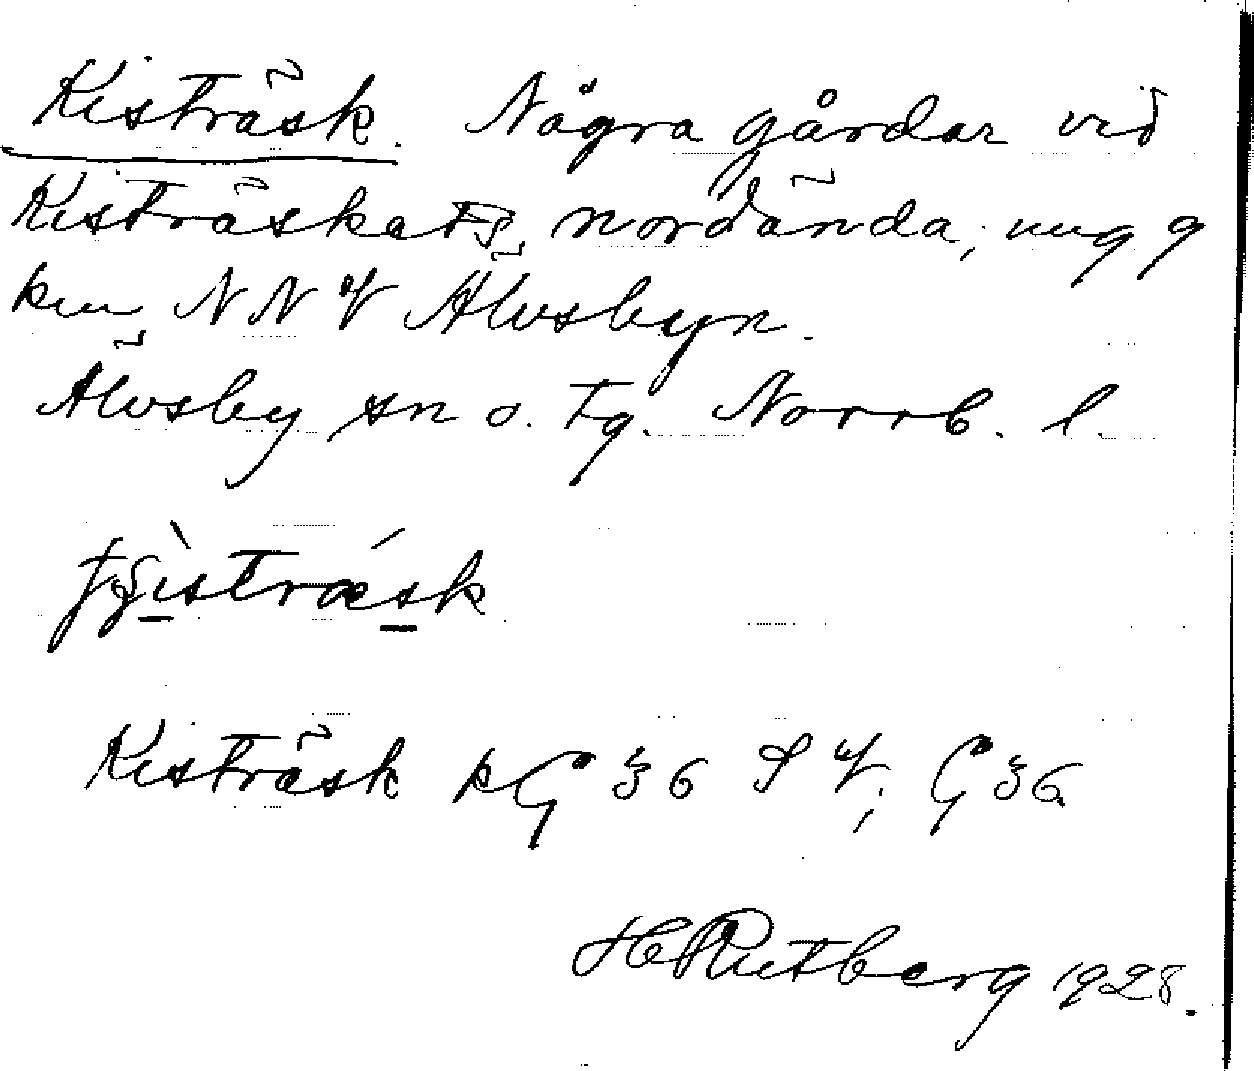 Kisträsk. Några gårdar vid
Kisträskets nordända, ung 9
km NNV Älvsbyn.
Älvsby sn o. tg. Norrb. l.
Kisträsk kG 36 SV; G 36.
H Rutberg 1928.